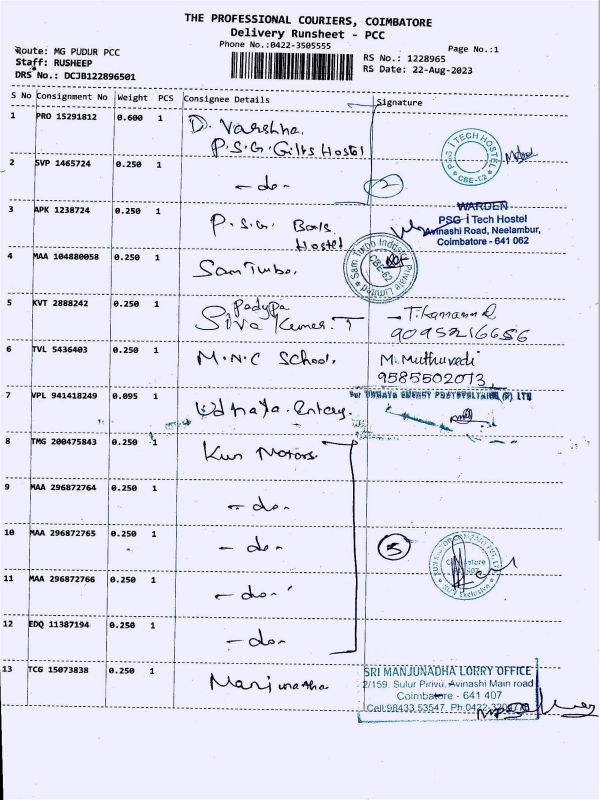 THE PROFESSIONAL COURIERS, COIMBATORE
Delivery Runsheet - PCC
Phone No.:0422-3505555
Page No.:1
Route: MG PUDUR PCC
Staff: RUSHEEP
DRS No.: DCJB122896501
RS No.: 1228965
RS Date: 22-Aug-2023
S No Consignment No Weight PCS Consignee Details Signature
1 PRO 15291812 0.600 1 D. Varshha
P.S.G. Girls Hostel
PSG iTECH HOSTEL
CBE-62
2 SVP 1465724 0.250 1 - do - 2
3 APK 1238724 0.250 1 P.S.G. Boys
Hostel
WARDEN
PSG i Tech Hostel
Avinashi Road, Neelambur,
Coimbatore - 641 062
4 MAA 104880058 0.250 1 Sam Turbo.
Sam Turbo Industry Private Limited
CBE-62
5 KVT 2888242 0.250 1 Siva Kumar. T
9095216656
6 TVL 5436403 0.250 1 M.N.C School. M. Muthuvedi
9585502073
7 VPL 941418249 0.095 1 Udhaya. Energy.
For UDHAYA ENERGY PHOTOVOLTAICS (P) LTD
8 TMG 200475843 0.250 1 Kun Motors
9 MAA 296872764 0.250 1 - do -
10 MAA 296872765 0.250 1 - do - 5
11 MAA 296872766 0.250 1 - do -
12 EDQ 11387194 0.250 1 - do -
13 TCG 15073838 0.250 1 Manjunatha
SRI MANJUNADHA LORRY OFFICE
2/159. Sulur Pirivu, Avinashi Main road
Coimbatore - 641 407
Cell:98433 53547, Ph:0422-